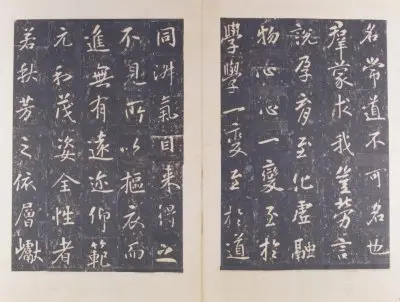 名常道不可名也
羣蒙求我豈勞言
說孕育至化虛融
物心心一變至於
學學一變至於道
同淵氣自来得之
不見所以摳衣而
進無有遠迩仰範
元和茂姿全性者
若秋芳之依層巘